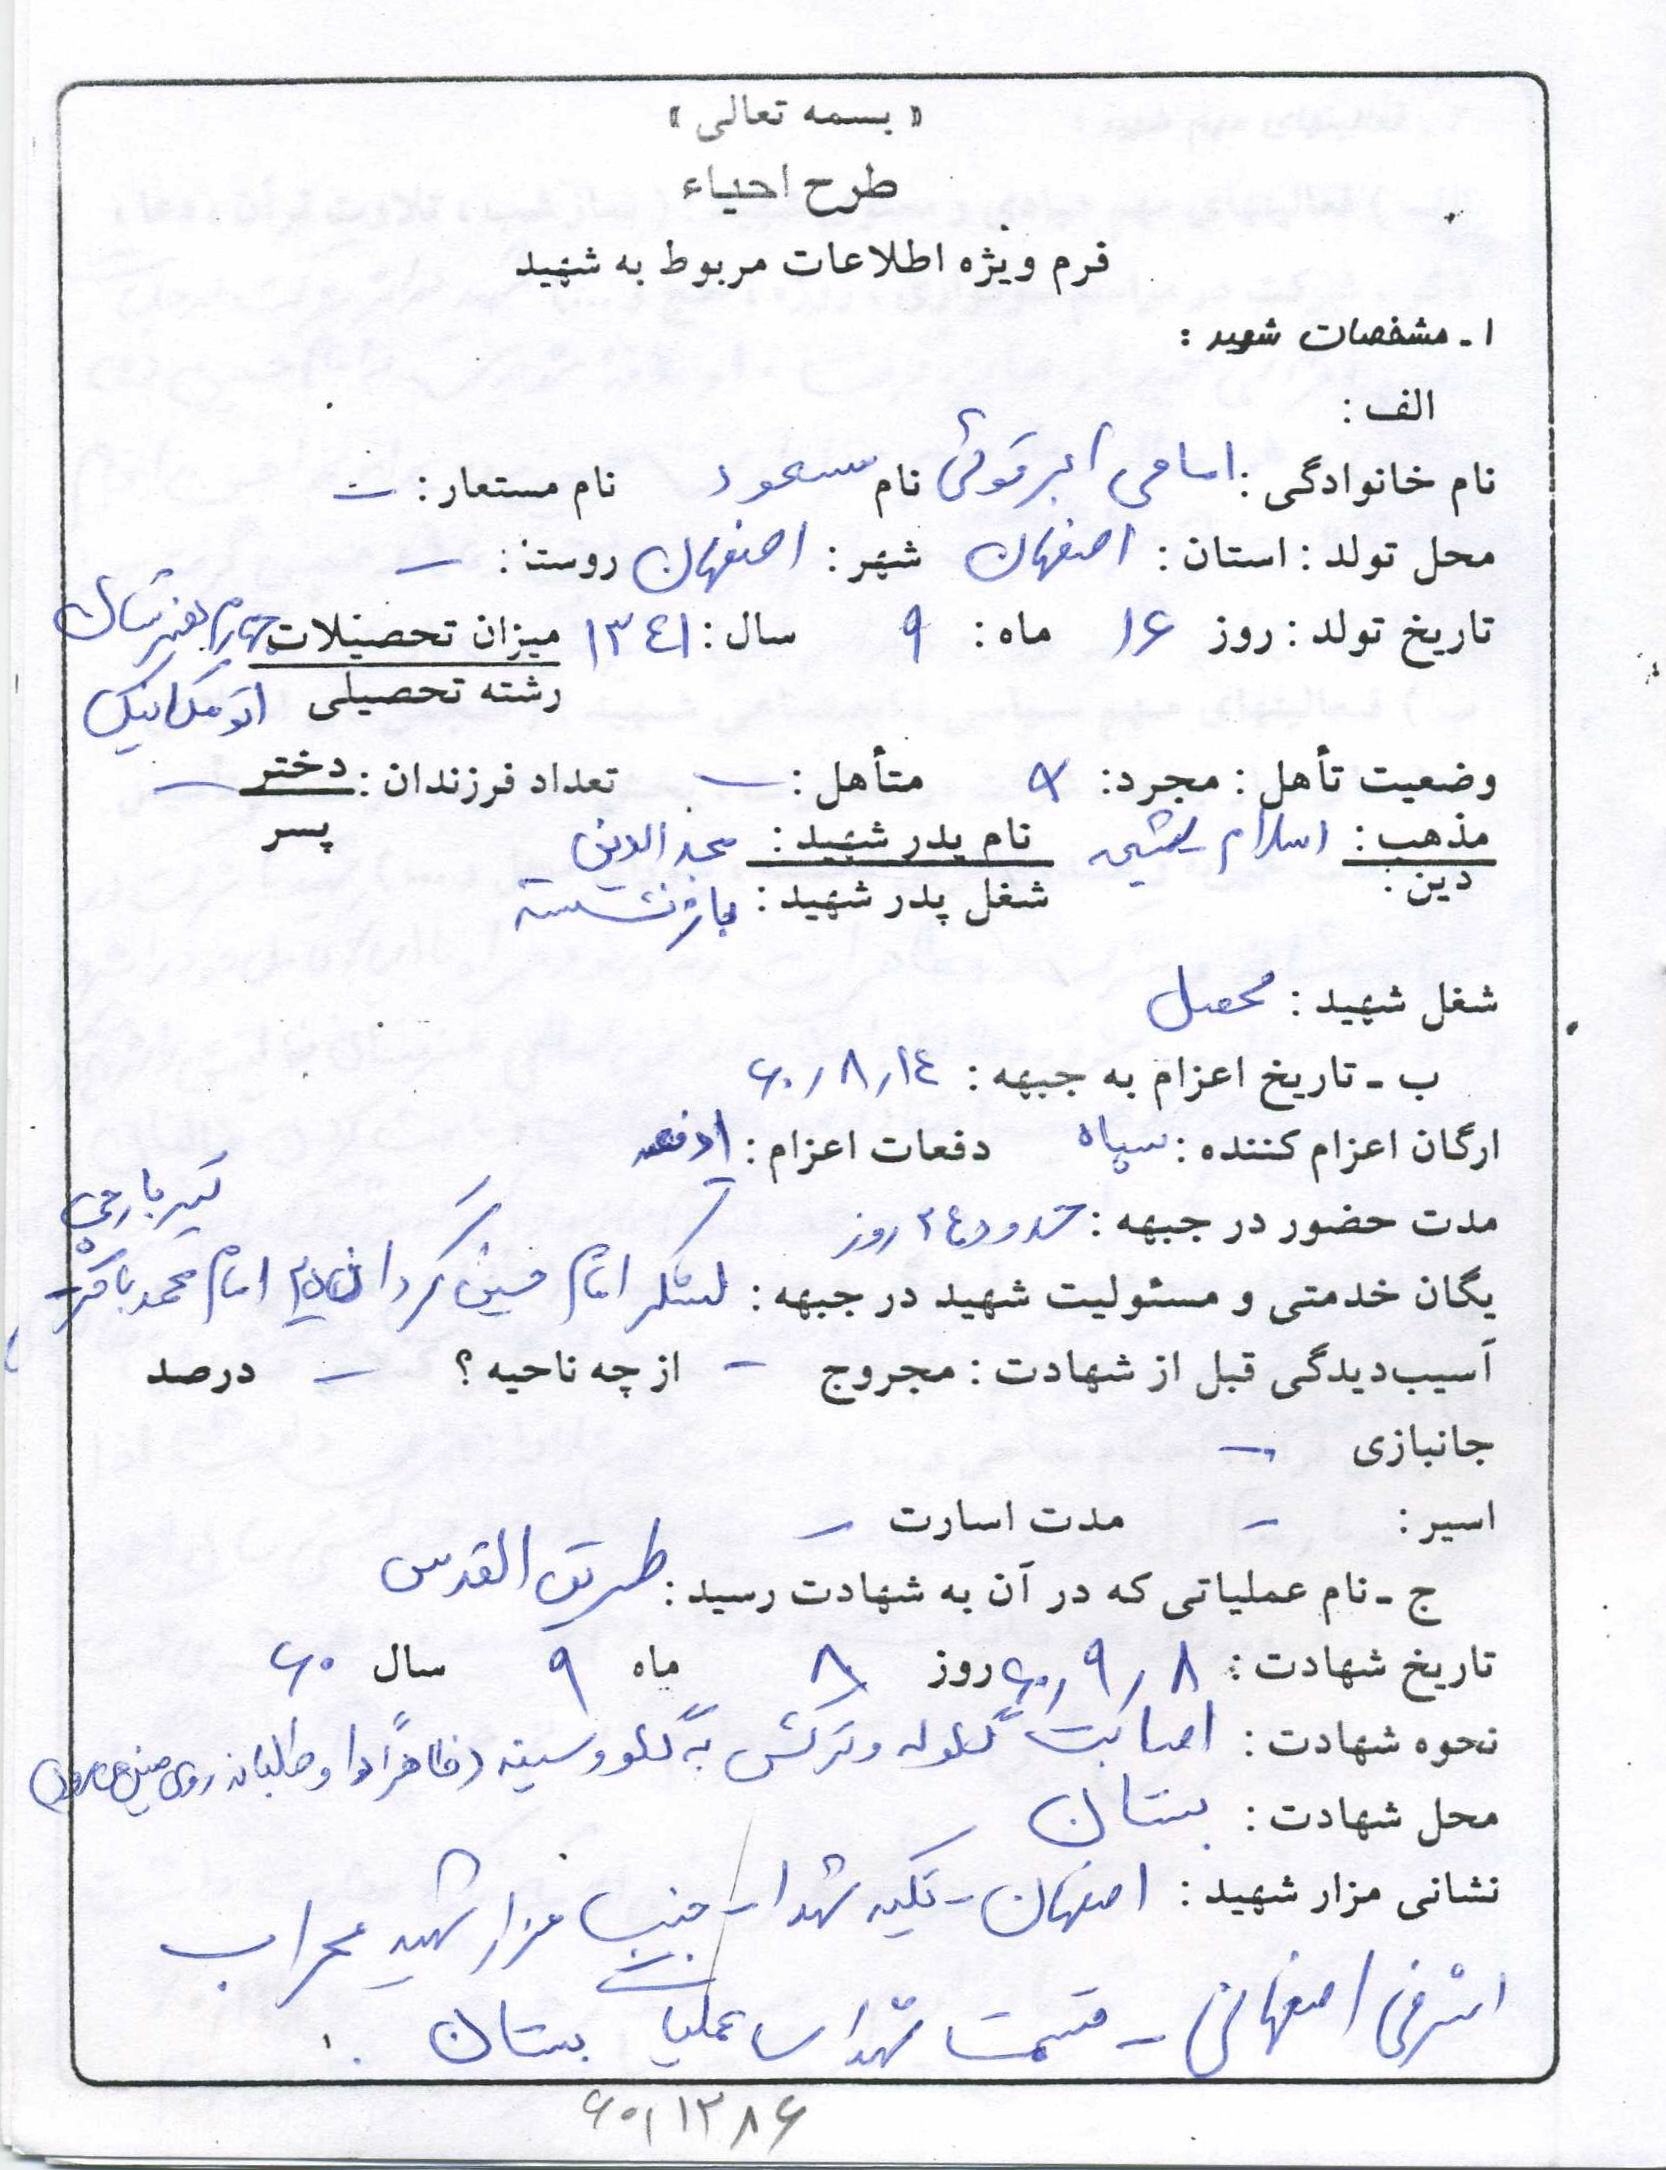 « بسمه تعالی »
طرح احیاء
فرم ویژه اطلاعات مربوط به شهید
۱ ـ مشخصات شهید :
الف :
نام خانوادگی : امامی ابرقوئی نام مسعود نام مستعار : –
محل تولد : استان : اصفهان شهر : اصفهان روستا : –
تاریخ تولد : روز ۱۶ ماه : ۹ سال : ۱۳۴۱ میزان تحصیلات چهارم هنرستان
رشته تحصیلی اتومکانیک
وضعیت تأهل : مجرد : × متأهل : – تعداد فرزندان : دختر –
پسر
مذهب : اسلام شیعه نام پدر شهید : مجدالدین
دین : شغل پدر شهید : بازنشسته
شغل شهید : محصل
ب ـ تاریخ اعزام به جبهه : ۶۰/۸/۱۴
ارگان اعزام کننده : سپاه دفعات اعزام : ۱ دفعه
مدت حضور در جبهه : حدود ۲۴ روز
یگان خدمتی و مسئولیت شهید در جبهه : لشکر امام حسین گردان امام محمد باقر تیربارچی
آسیب‌دیدگی قبل از شهادت : مجروح – از چه ناحیه ؟ – درصد
جانبازی –
اسیر : – مدت اسارت –
ج ـ نام عملیاتی که در آن به شهادت رسید : طریق القدس
تاریخ شهادت : ۶۰/۹/۸ روز ۸ ماه ۹ سال ۶۰
نحوه شهادت : اصابت گلوله و ترکش به گلو و سینه داوطلبانه روی مین
محل شهادت : بستان
نشانی مزار شهید : اصفهان – تکیه شهدا – جنب مزار شهید محراب
اشرفی اصفهانی – قسمت شهدای عملیات بستان .
۶۰۱۱۳۸۶